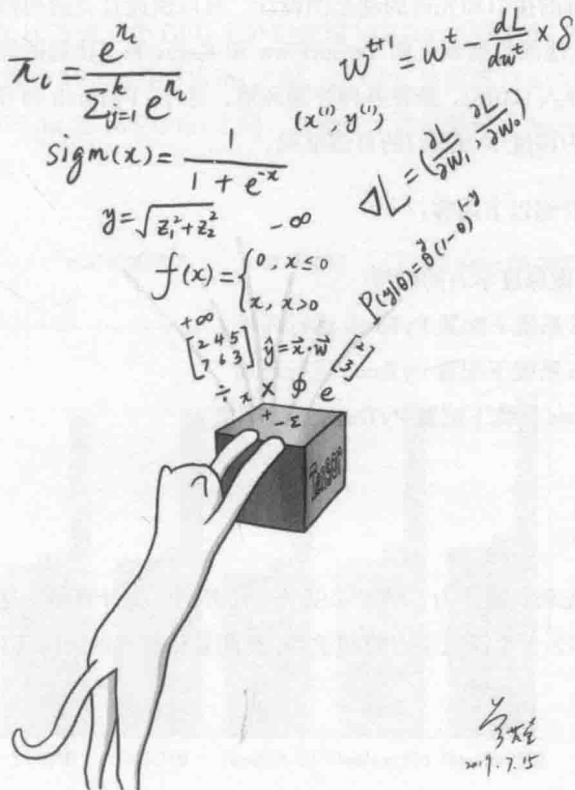 n̄ᵢ = e^{nᵢ} / Σ_{j=1}^{k} e^{nᵢ}
w^{t+1} = w^t - dL/dw^t × δ
(x⁽¹⁾, y⁽¹⁾)
sigm(x) = 1 / (1 + e^{-x})
ΔL = (∂L/∂w₁, ∂L/∂w₀)
y = √(z₁² + z₂²)
-∞
f(x) = { 0, x ≤ 0
x, x > 0
P(y|θ) = θ^y (1-θ)^{1-y}
+∞
[2 4 5
7 6 3]
ŷ = x⃗·w⃗
[-2
3]
÷ x × ϕ e
+ - Σ
Tensor
2019.7.15